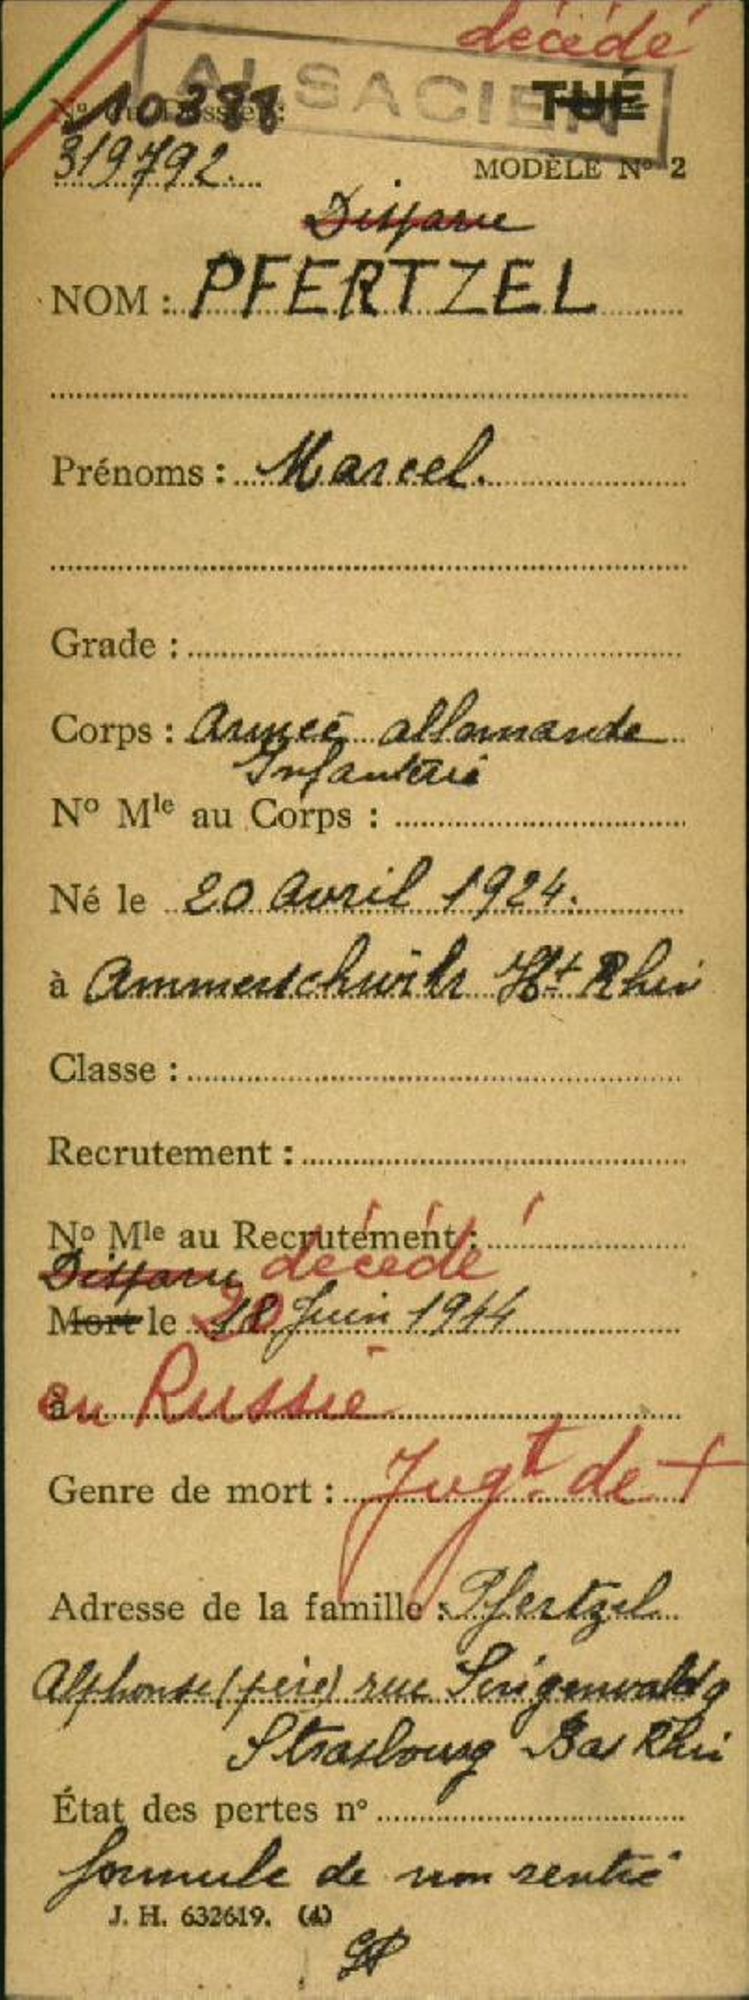 décédé
ALSACIEN
TUÉ
N° du Dossier :
319792.
MODÈLE N° 2
Disparu
NOM : PFERTZEL
Prénoms : Marcel.
Grade :
Corps : Armée allemande
Infanterie
N° Mle au Corps :
Né le 20 Avril 1924.
à Ammerschwihr Ht Rhin
Classe :
Recrutement :
N° Mle au Recrutement :
Disparu décédé
Mort le 20 Juin 1944
en Russie
Genre de mort : Jugt. de +
Adresse de la famille : Pfertzel
Alphonse (père) rue
Strasbourg Bas Rhin
État des pertes n°
formule de non rentré
J. H. 632619. (4)